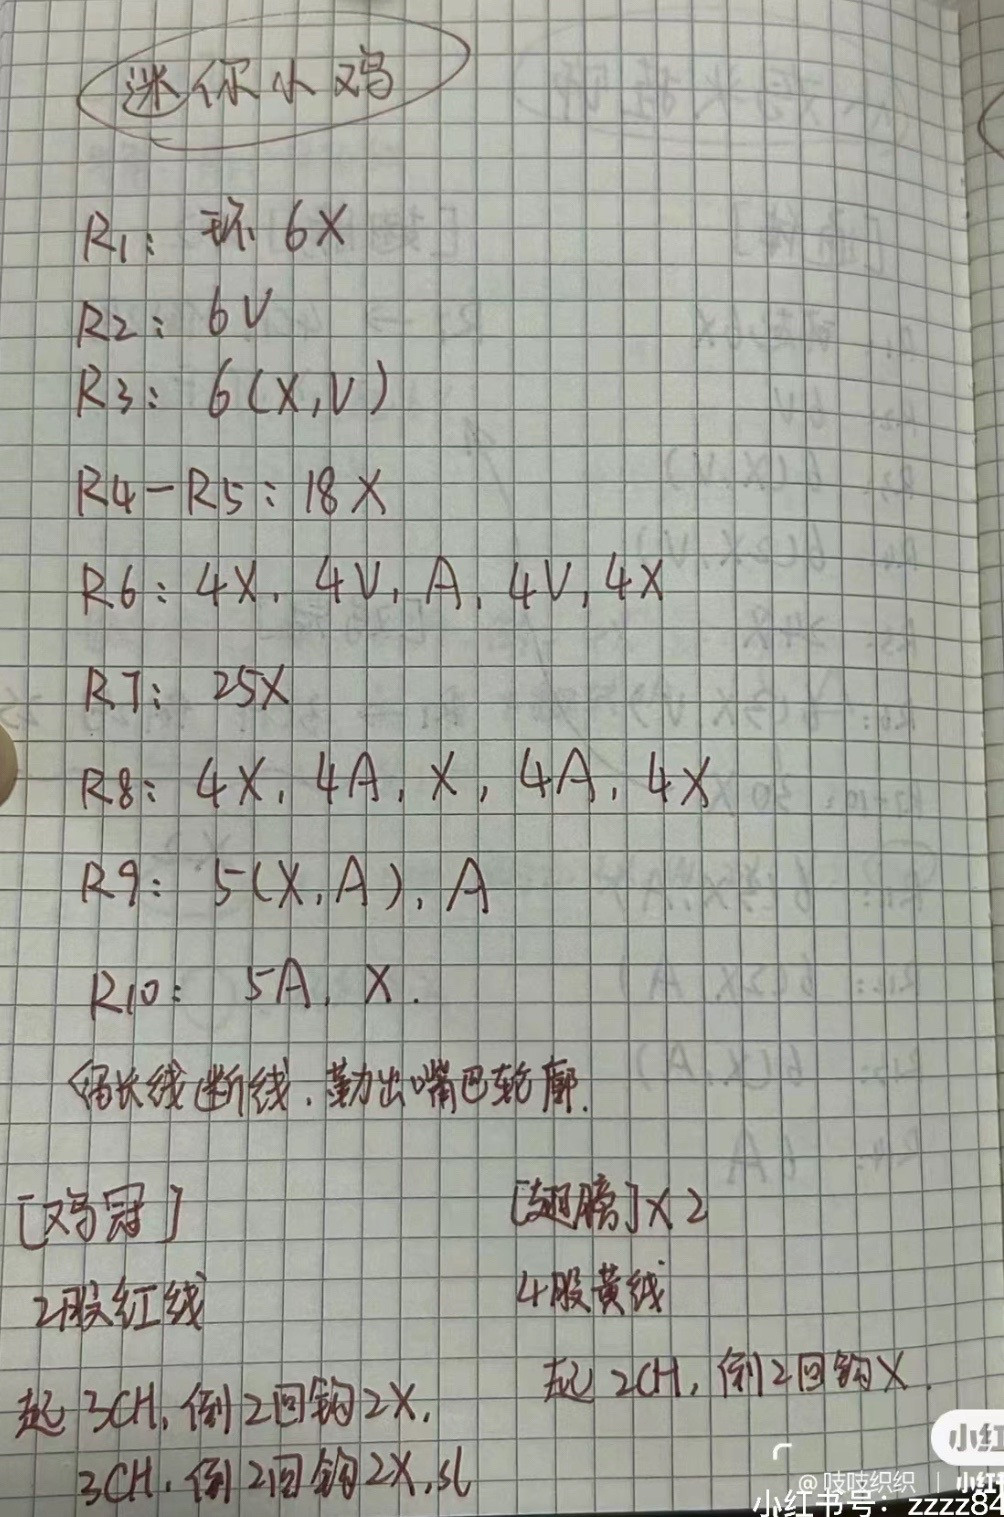 迷你小鸡
R1: 环 6X
R2: 6V
R3: 6(X,V)
R4-R5: 18X
R6: 4X, 4V, A, 4V, 4X
R7: 25X
R8: 4X, 4A, X, 4A, 4X
R9: 5(X,A), A
R10: 5A, X.
留长线断线,勒出嘴巴轮廓.
[鸡冠]
2股红线
起3CH,倒2回钩2X,
3CH,倒2回钩2X,sl
[翅膀]X2
4股黄线
起2CH,倒2回钩X.
小红
@吱吱织织 | 小红
小红书号:zzzz84